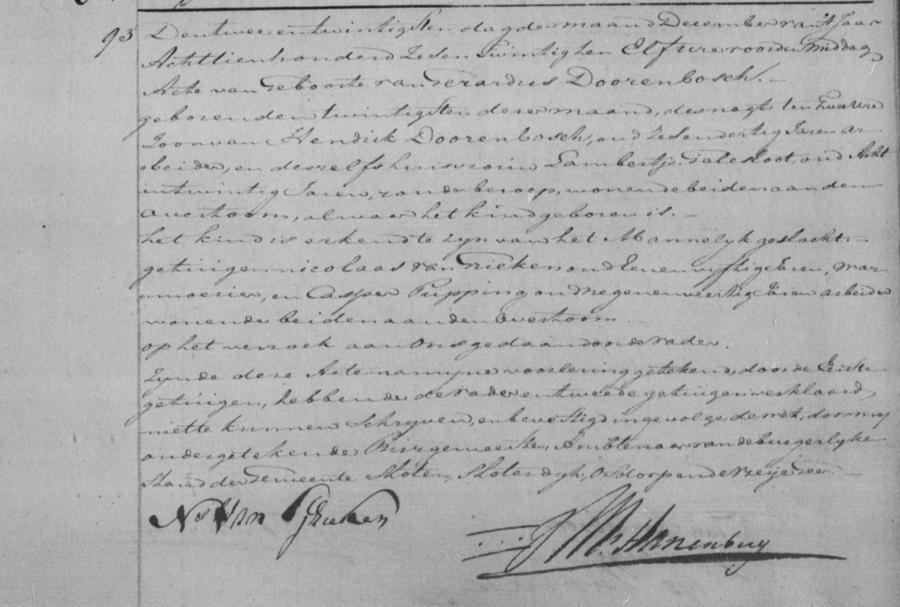 93 Den twee en twintigsten dag der maand December van 't Jaar
Achttienhonderd Zeden Twintig ten Elf ure voorden middag
Acte van Geboorte van Gerardus Doorenbosch.
geboren den twintigsten dezer maand, des nagts ten Twee ure
Zoon van Hendrik Doorenbosch, oud Zedendertig Jaren ar-
beider, en deszelfs huisvrouw Lambertje oud Acht
entwintig Jaren, zonder beroep, wonende beiden aan den
Overtoom, alwaar het kind geboren is.
het kind is erkend te zyn van het Mannelyk geslacht
getuigen nicolaas van oud Zeven vyftig Jaren, War-
moesier, en Casper Pupping oud Negen en veertig Jaren arbeider
wonende beiden aan den Overtoom
op het verzoek aan Ons gedaan door de vader.
Zynde deze Acte na myne voorlezing getekend, door de Eerste
getuigen, hebbende de vader en tweede getuigen verklaard
niet te kunnen Schryven, en bevestigd ingevolge de wet, door my
ondergetekende Burgemeester, Ambtenaar van de burgerlyke
Stand der Gemeente Sloten, Sloterdyk, Osdorp en de Vrye Geer.
Ns Van